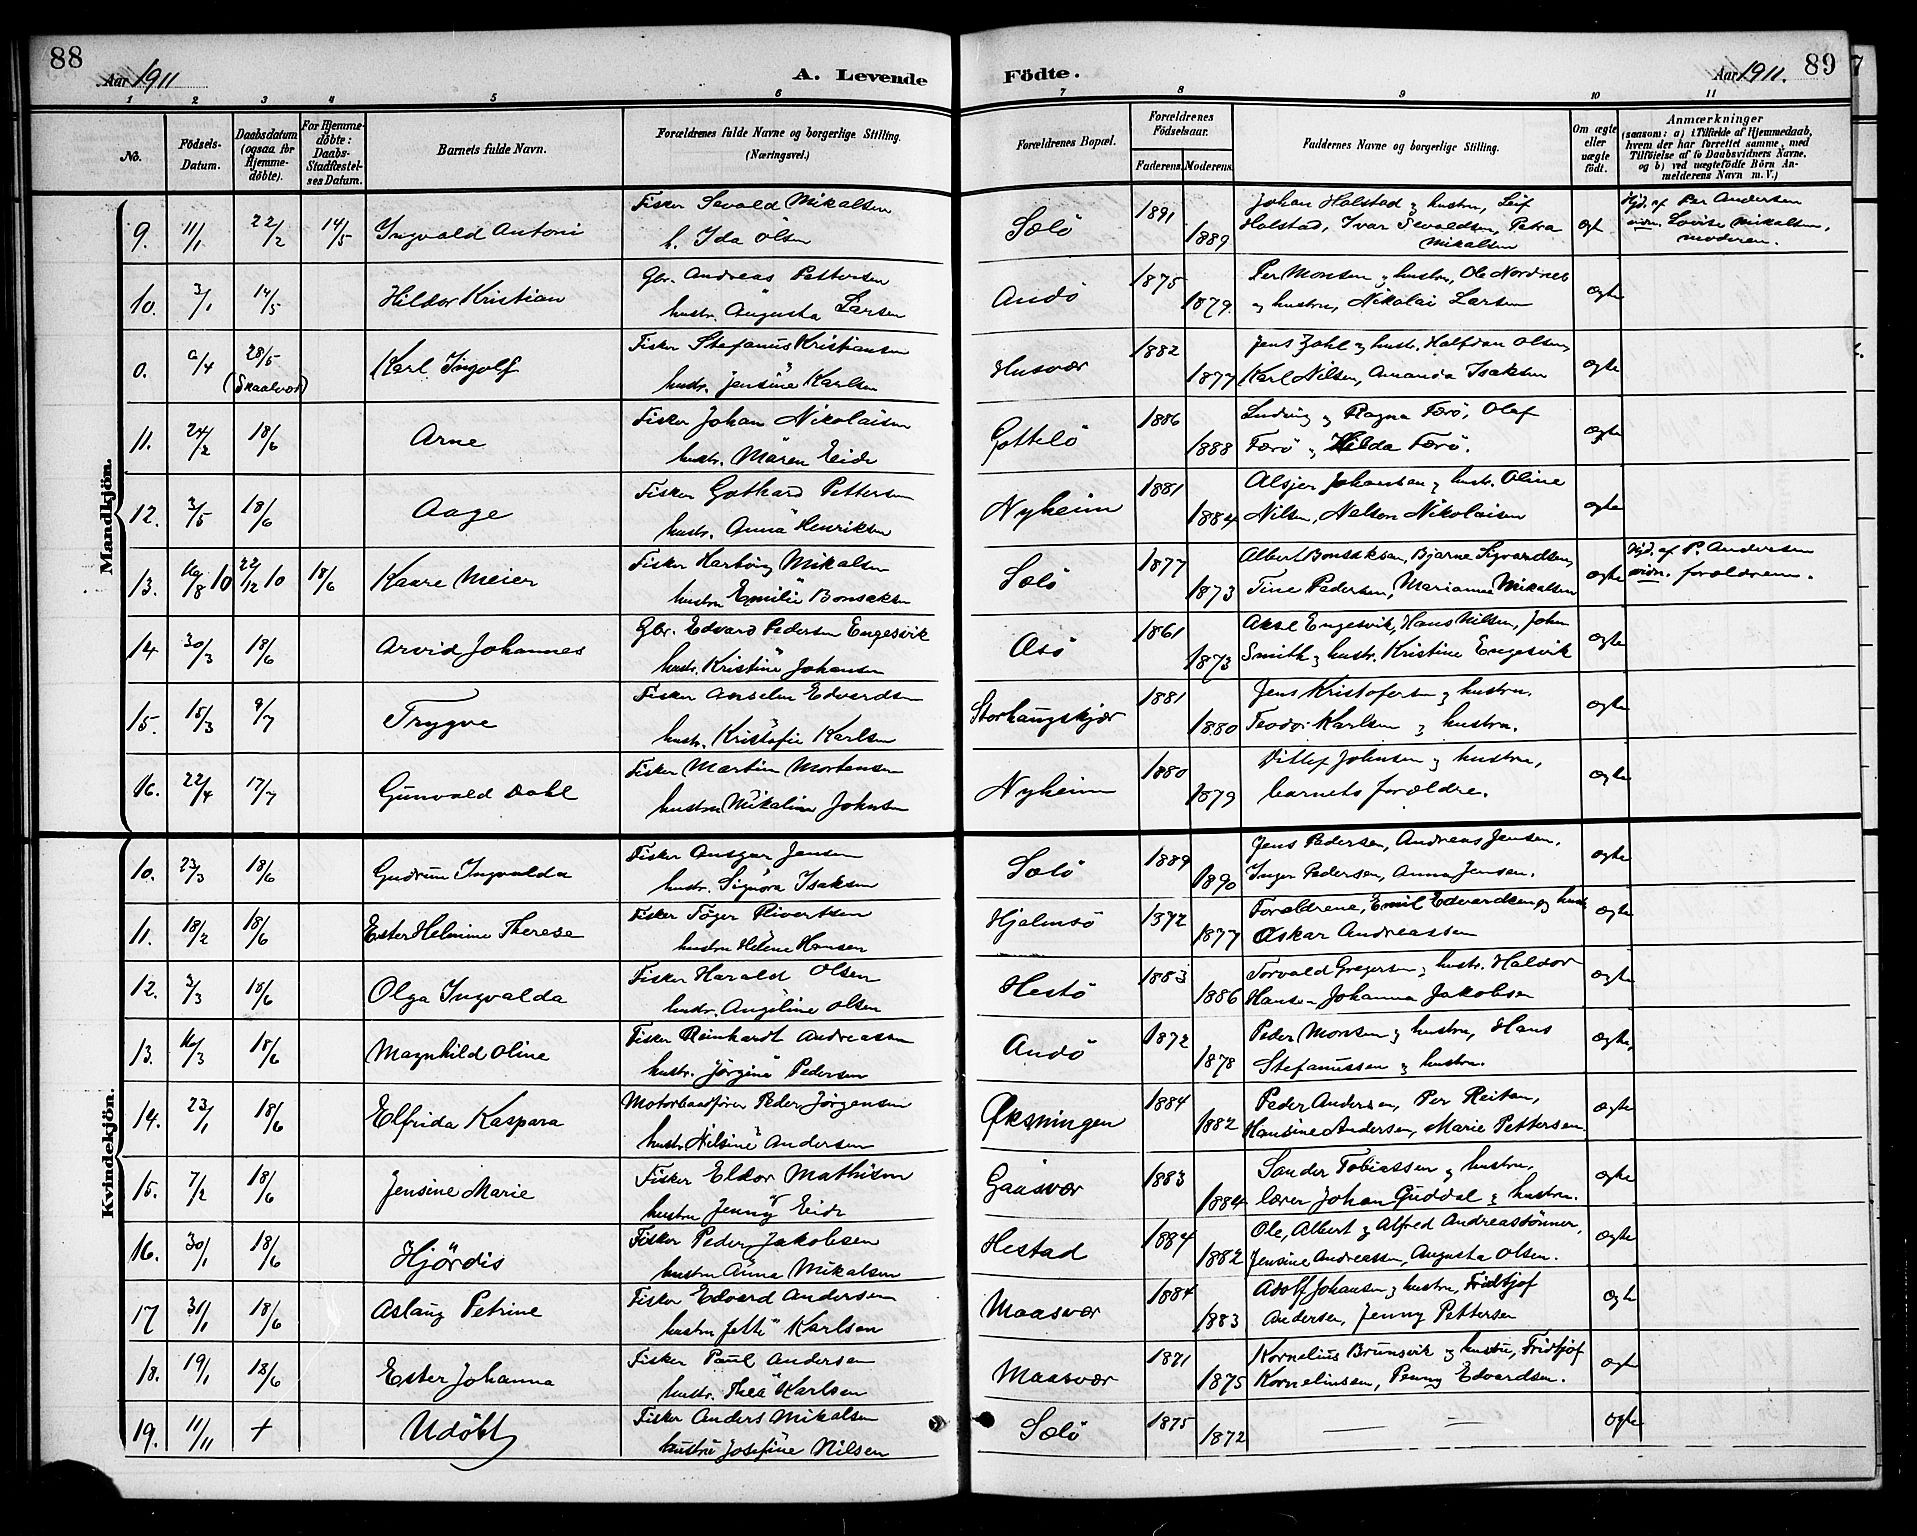 88
Aar 1911
A. Levende
Födte.
Aar 1911.
89
1 2 3 4 5 6 7 8 9 10 11
No.
Födsels-Datum.
Daabsdatum (ogsaa for Hjemmedöbte).
For Hjemmedöbte: Daabs-Stadfæstelses Datum.
Barnets fulde Navn.
Forældrenes fulde Navne og borgerlige Stilling. (Næringsvei.)
Forældrenes Bopæl.
Forældrenes Födselsaar.
Faderens. Moderens.
Faddernes Navne og borgerlige Stilling.
Om ægte eller uægte födt.
Anmærkninger
(saasom: a) i Tilfælde af Hjemmedaab, hvem der har forrettet samme, med Tilföielse af to Daabsvidners Navne, og b) ved uægtefödte Börn Anmelderens Navn m. V.)
Mandkjön.
9. 11/1 22/2 14/5 Ingvald Antoni Fisker Sevald Mikalsen
h. Ida Olsen Sælö 1891 1889 Johan Holstad og hustru, Leif
Holstad, Ivar Sevaldsen, Petra
Mikalsen Hjd. af Per Andersen
vidn. Lovise Mikalsen,
moderen.
10. 3/1 14/5 Hildor Kristian Gbr. Andreas Pettersen
hustr. Augusta Larsen Andö 1875 1879. Per Monsen og hustru, Ole Nordnes
og hustru, Nikolai Larsen ægte
0. 9/4 28/5 (Skaalvær) Karl Ingolf Fisker Stefanus Kristiansen
hustr. Jensine Karlsen Husvær 1882 1877 Jens Zahl og hustr. Halfdan Olsen,
Karl Nilsen, Amanda Isaksen ægte
11. 24/2 18/6 Arne Fisker Johan Nikolaisen
hustr. Maren Eide Gottelö 1886 1888 Ludvig og Ragna Færö, Olaf
Færö og Hilda Færö. ægte
12. 3/5 18/6 Aage Fisker Gothard Pettersen
hustr. Anna Henriksen Nyheim 1881 1884 Johansen og hustr. Oline
Nilsen, Nelson Nikolaisen ægte
13. 16/8 10 22/12 10 18/6 Kaare Meier Fisker Hartvig Mikalsen
hustru Emilie Bonsaksen Sælö 1877 1873 Albert Bonsaksen, Bjarne Sigvardtsen,
Tine Pedersen, Marianne Mikalsen ægte Hjd. af P. Andersen
vidn. forældrene.
14 30/3 18/6 Arvid Johannes Gbr. Edvard Pedersen Engesvik
hustr. Kristine Johansen Æsö 1861 1873 Aksel Engesvik, Hans Nilsen, John
Smith og hustr. Kristine Engesvik ægte
15. 15/3 9/7 Trygve Fisker Anselm Edvardsen
hustr. Kristofie Karlsen Storhaugskjær 1881 1880 Jens Kristofersen og hustru.
Teodor Karlsen og hustru. ægte
16. 22/4 17/7 Gunvald Dahl Fisker Martin Mortensen
hustru Mikaline Johnsen Nyheim 1880 1879 Ditlef Johnsen og hustru,
barnets forældre. ægte
Kvindekjön.
10. 23/3 18/6 Gudrun Ingvalda Fisker Ansgar Jensen
hustr. Signora Isaksen Sælö 1889 1890 Jens Pedersen, Andreas Jensen,
Inger Pedersen, Anna Jensen. ægte
11. 18/2 18/6 Ester Helmine Therese Fisker Töger Rivertsen
hustru Helene Hansen Hjelmsö 1872 1877 Forældrene, Emil Edvardsen og hustr.
Oskar Andreassen ægte
12. 3/3 18/6 Olga Ingvalda Fisker Harald Olsen
hustr. Angeline Olsen Hestö 1883 1886 Torvald Gregersen og hustr. Haldor
Hansen Johanna Jakobsen ægte
13. 16/3 18/6 Magnhild Oline Fisker Reinhardt Andreassen
hustr. Jörgine Pedersen Andö 1872 1878 Peder Monsen og hustru, Hans
Stefanussen og hustru. ægte,
14. 23/1 18/6 Elfrida Kaspara Motorbaadförer Peder Jörgensen
hustr. Nilsine Andersen Øksningen 1884 1882 Peder Andersen, Per Reitan,
Hansine Andersen, Marie Pettersen. ægte
15. 7/2 18/6 Jensine Marie Fisker Eldor Mathisen
hustru Jenny Eide Gaasvær 1883 1884 Sander Tobiassen og hustru.
lærer Johan Guddal og hustru. ægte
16. 30/1 18/6 Hjördis Fisker Peder Jakobsen
hustru Anna Mikalsen Hestad 1884 1882 Ole, Albert og Alfred Andreassönner,
Jensine Andreassen, Augusta Olsen. ægte
17 31/1 18/6 Aslaug Petrine Fisker Edvard Andersen
hustru Jette Karlsen Maasvær 1884 1883 Adolf Johansen og hustru, Fridtjof
Andersen, Jenny Pettersen ægte
18. 19/1 18/6 Ester Johanna Fisker Paul Andersen
hustr. Thea Karlsen Maasvær 1871 1875 Kornelius Brunsvik og hustru, Fridtjof
Korneliusen, Penny Edvardsen. ægte
19. 11/11 + Udöbt Fisker Anders Mikalsen
hustru Josefine Nilsen Sælö 1875 1872 — — ægte